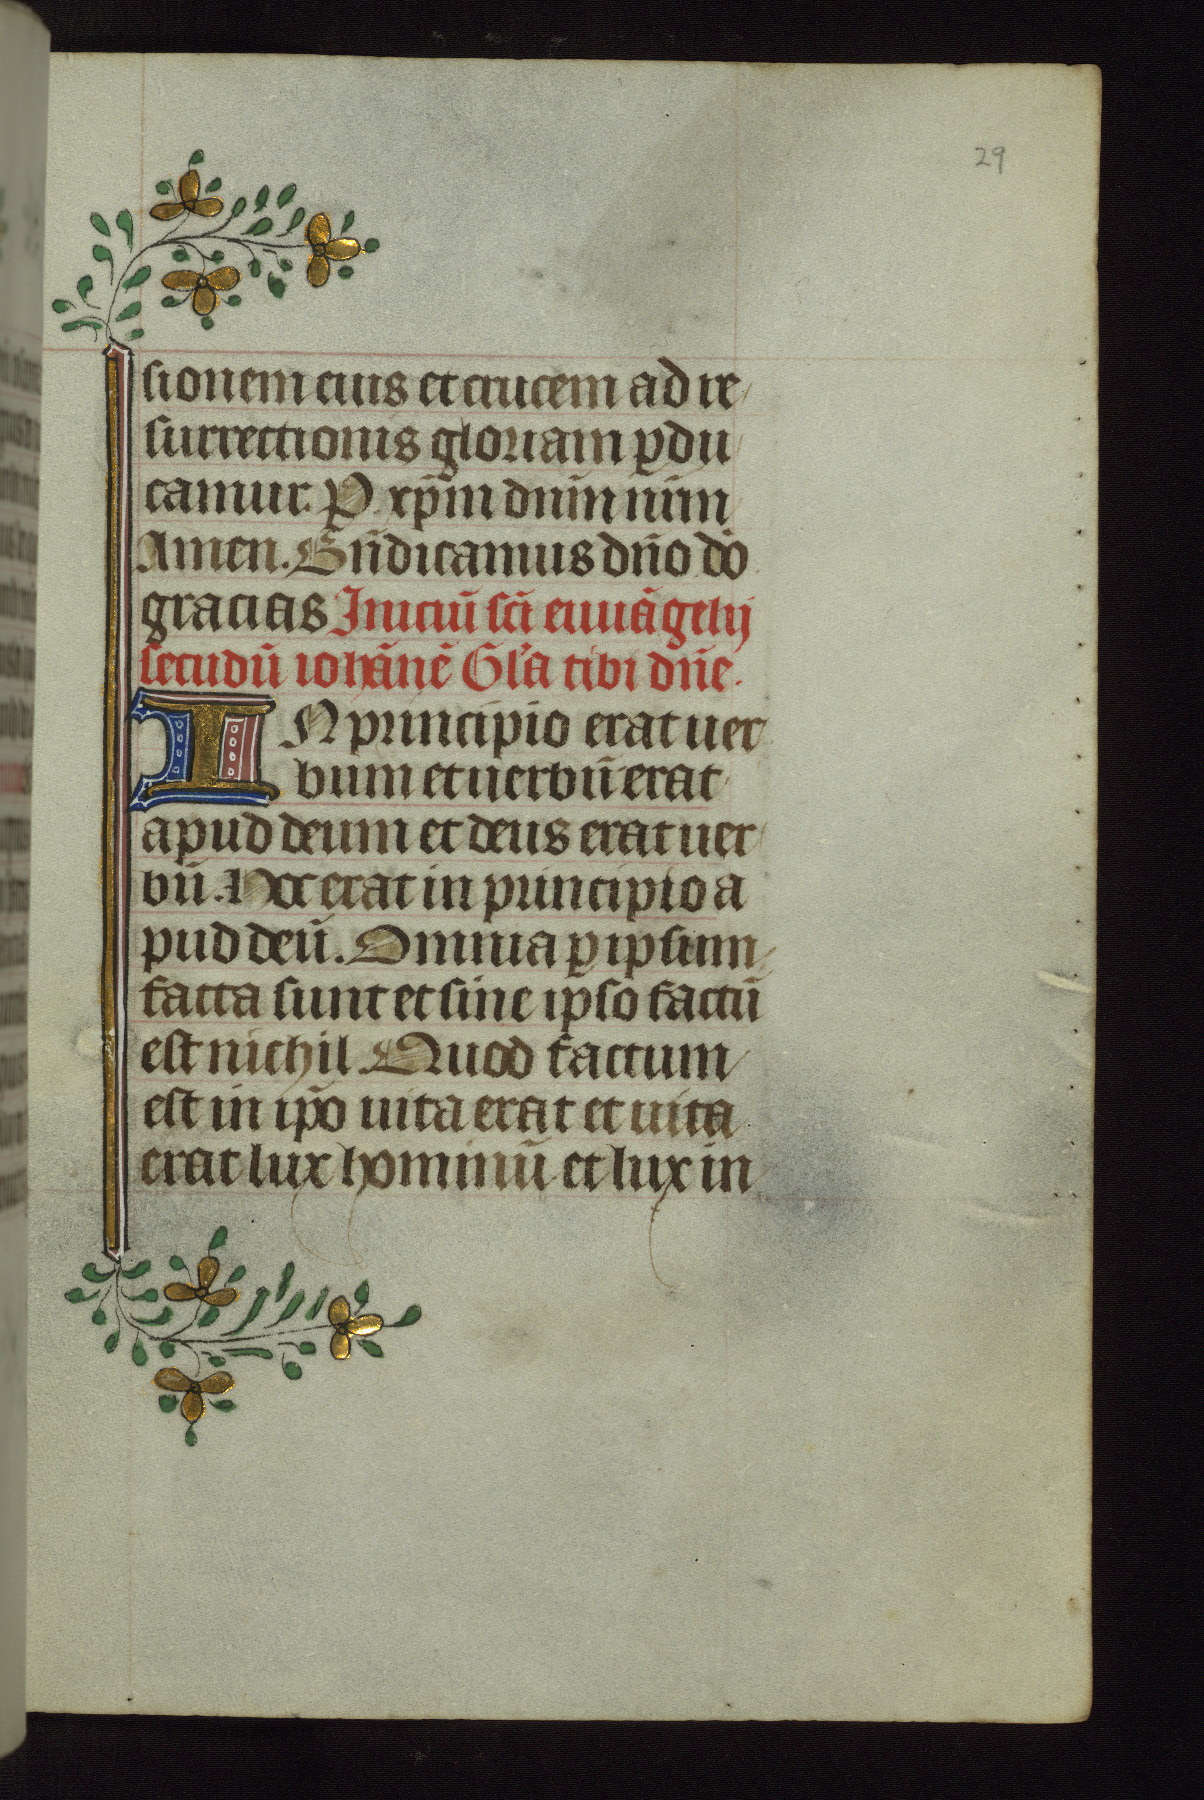 29
sionem eius et crucem ad re
surrectionis gloriam ꝑdu
camur. Ꝑ xp̄m dn̄m nr̄m
Amen. Bn̄dicamus dn̄o do̅
gracias Iniciū sc̄i euuāgelij
secūdū iohānē Gl'a tibi dn̄e.
IN principio erat uer
bum et uerbū erat
apud deum et deus erat uer
bū. Hoc erat in principio a
pud deū. Omnia ꝑ ipsum
facta sunt et sine ipso factū
est nichil Quod factum
est in ip̄o uita erat et uita
erat lux hominū et lux in